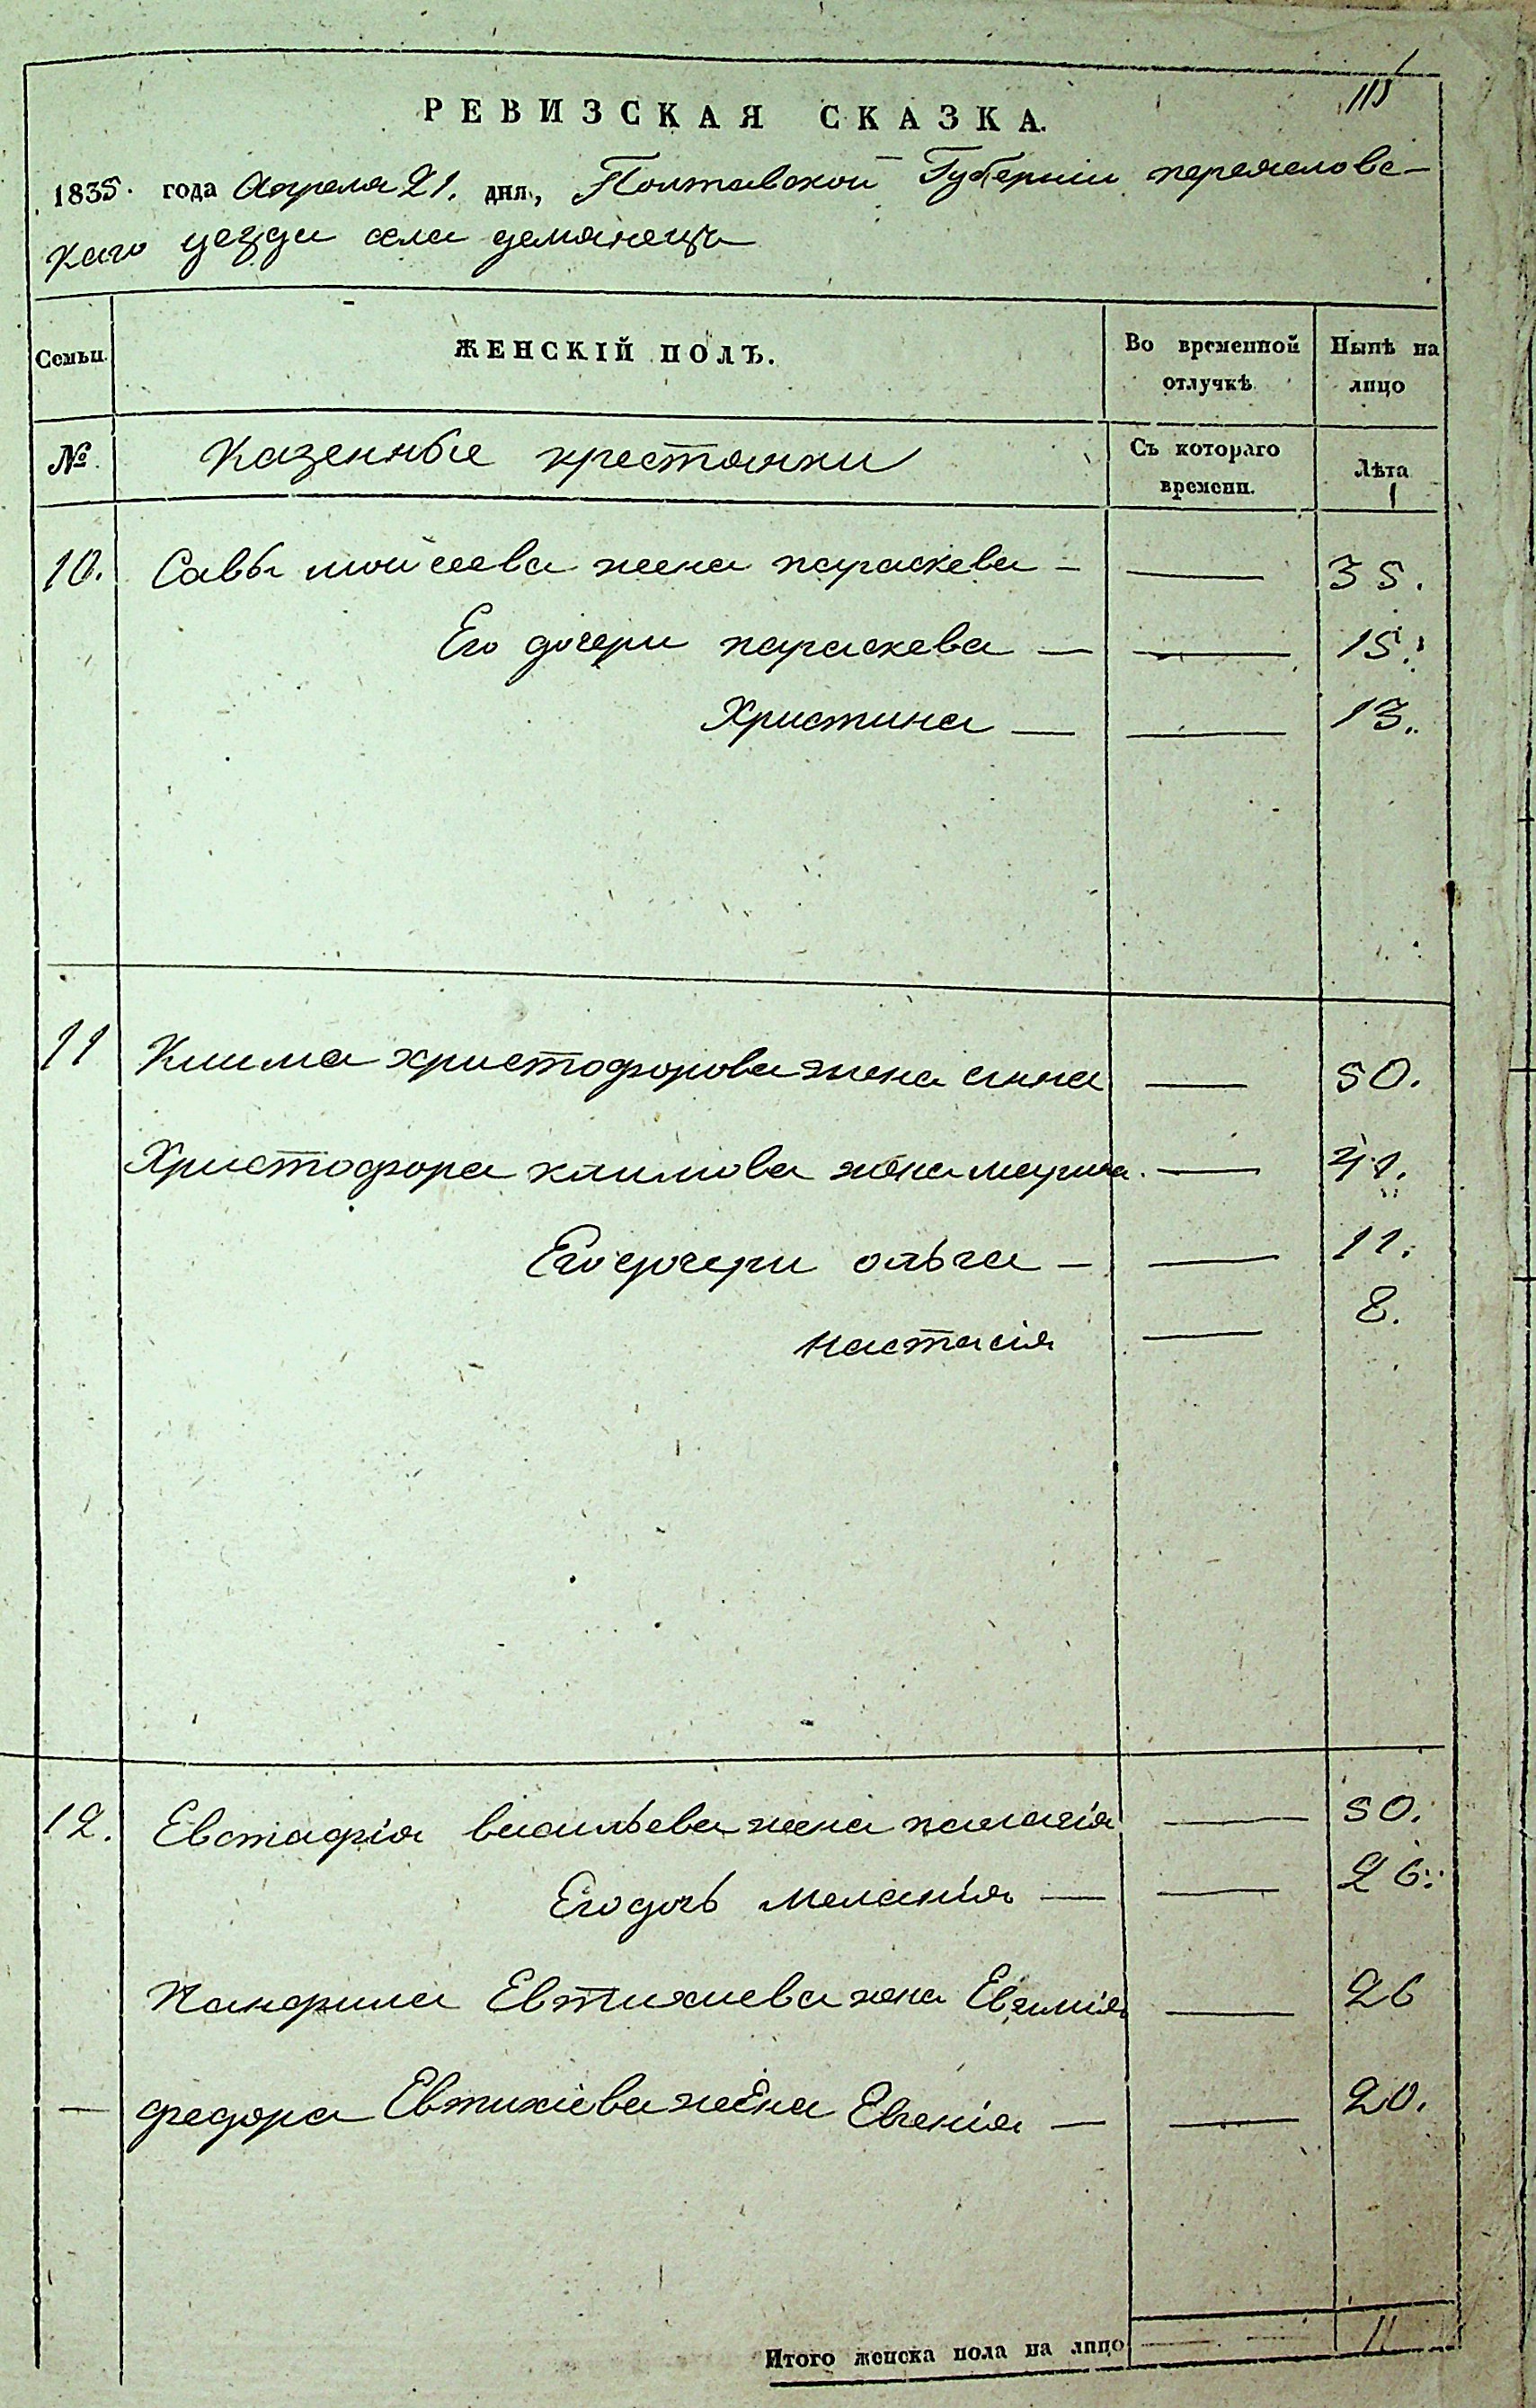 115
РЕВИЗСКАЯ СКАЗКА.
1835. года Апреля 21. дня, Полтавской Губернiи переяславс-
каго уезда села демянецъ
Семьи. ЖЕНСКІЙ ПОЛЪ. Во временной отлучкѣ Нынѣ на лицо
№. Казенные крестянки Съ котораго времени. Лѣта
10. Савы мойсеева жена параскева — — 35.
Его дочери параскева — — 15.
Христина — — 13.
11 Клима христофорова жена анна — 50.
Христофора климова жена марина — 41.
Его дочери ольга — — 11.
настасія — 8.
12. Евстафія васильева жена пелагія — 50.
Его дочь меланія — — 26.
Панфила Евтихиева жена Евфимія — 26
— федора Евтихіева жена Евгенія — — 20.
Итого женска пола на лицо — — 11